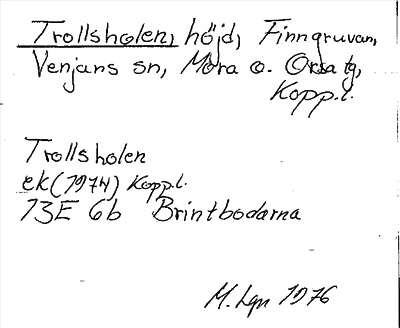 Trollsholen, höjd, Finngruvan,
Venjans sn, Mora o. Orsa tg,
Kopp.l.
Trollsholen
ek (1974) Kopp.l.
13E 6b Brintbodarna
M. Lgn 1976